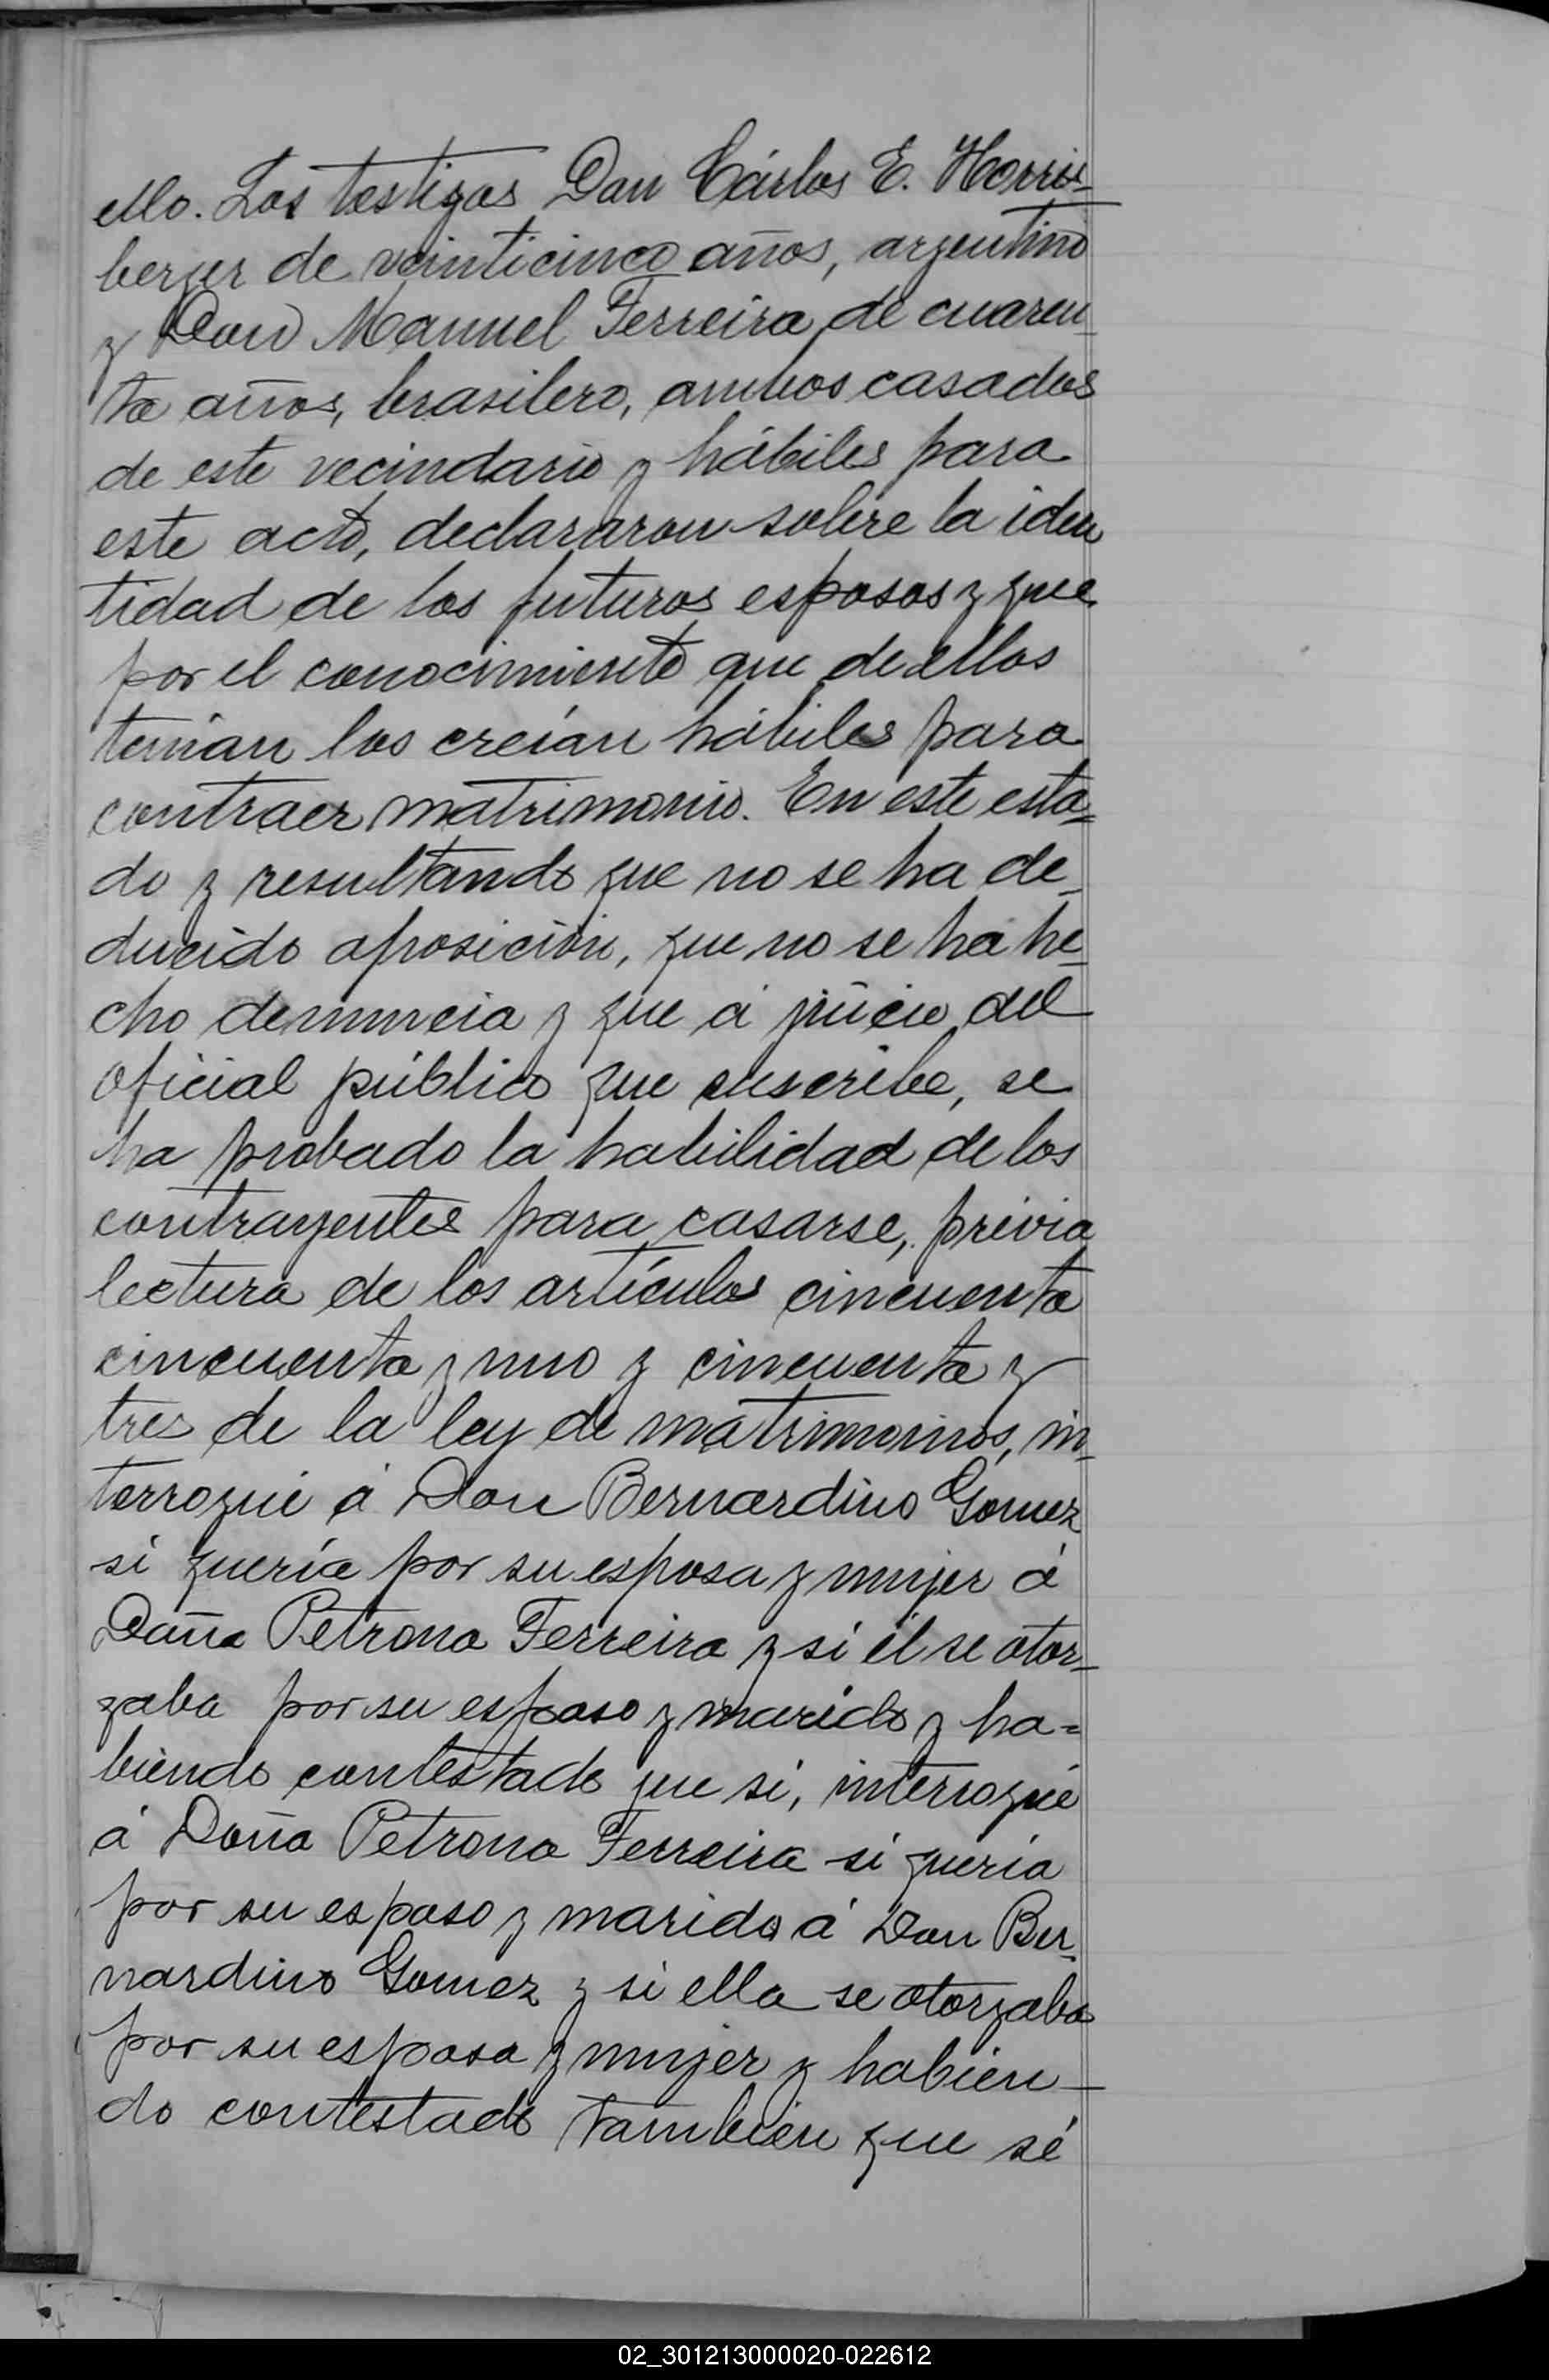 ello. Los testigos Don Cárlos E. Horris-
berger de veinticinco años, argentino
y Don Manuel Ferreira de cuaren-
ta años, brasilero, ambos casados
de este vecindario y hábiles para
este acto, declararon sobre la iden
tidad de los futuros esposos y que
por el conocimiento que de ellos
tenían los creían hábiles para
contraer matrimonio. En este esta-
do y resultando que no se ha de-
ducido oposición, que no se ha he-
cho denuncia y que á juicio del
oficial público que suscribe, se
ha probado la habilidad de los
contrayentes para casarse, prévia
lectura de los artículos cincuenta
cincuenta y uno y cincuenta y
tres de la ley de matrimonios, in-
terrogué á Don Bernardino Gomez
si quería por su esposa y mujer á
Doña Petrona Ferreira y si él se otor-
gaba por su esposo y marido y ha-
biendo contestado que si, interrogué
á Doña Petrona Ferreira si quería
por su esposo y marido á Don Ber-
nardino Gomez y si ella se otorgaba
por su esposa y mujer y habien-
do contestado también que sí
02_301213000020-022612